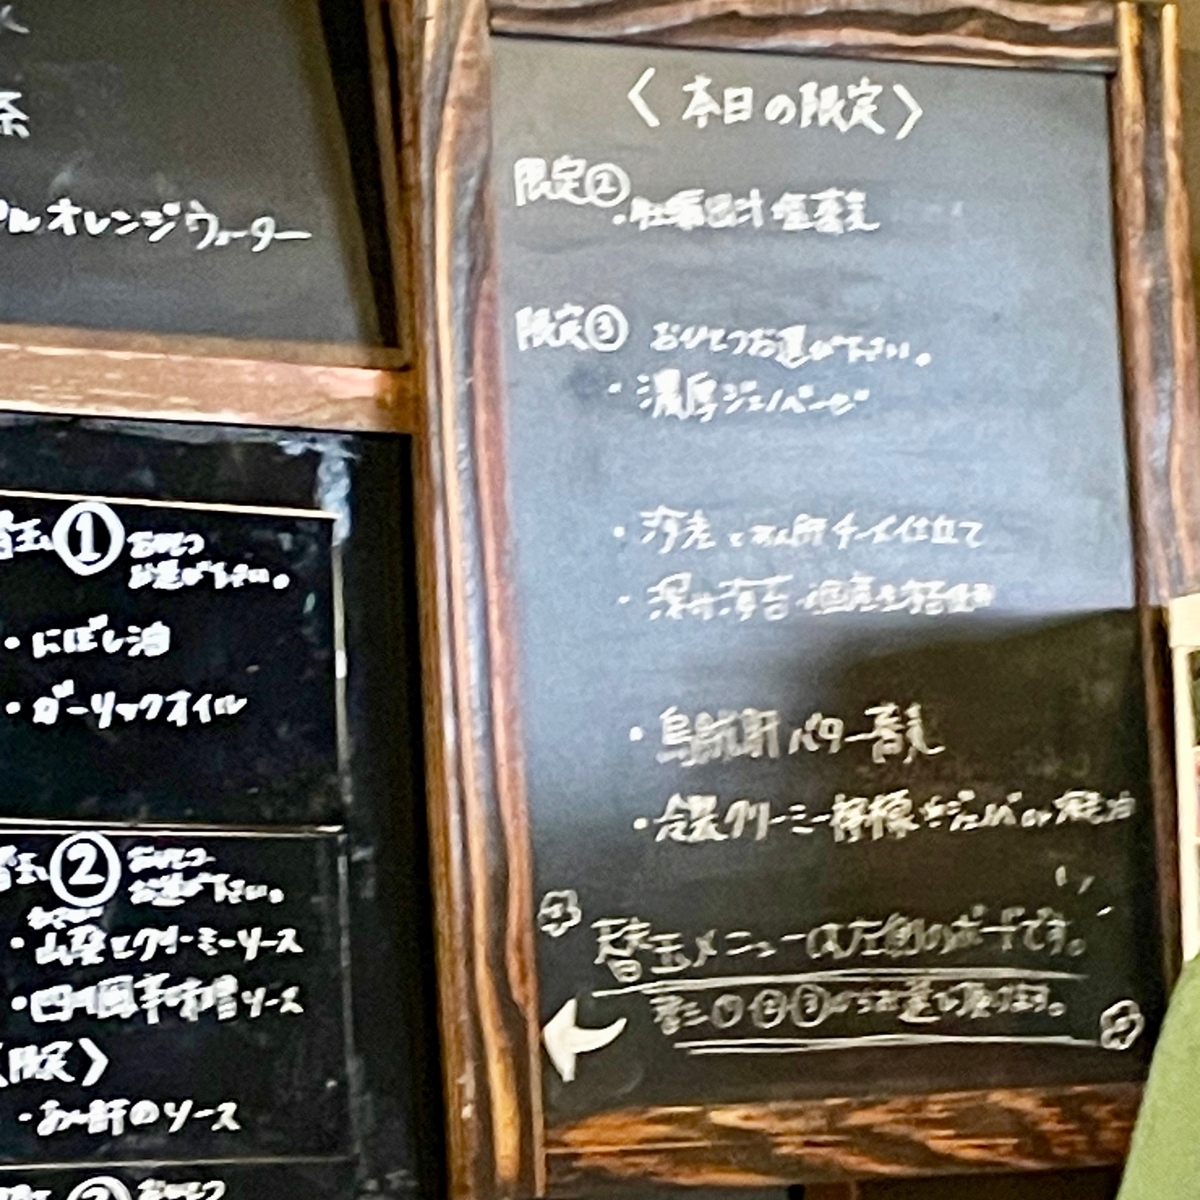 茶
ルオレンジウォーター
替玉①おひとつ
お選び下さい。
・にぼし油
・ガーリックオイル
替玉②おひとつ
お選び下さい。
わさび
・山葵とクリーミーソース
・四川風辛味噌ソース
〈限定〉
・あん肝のソース
おひとつ
〈本日の限定〉
限定②
・牡蠣出汁塩蕎麦
限定③ おひとつお選び下さい。
・濃厚ジェノベーゼ
・海老とあん肝チーズ仕立て
・海苔
・烏賊肝バター蕎麦
・冷製クリーミー檸檬 ジェノバ or
替玉メニューは左側のボードです。
替玉①②③からお選び頂けます。